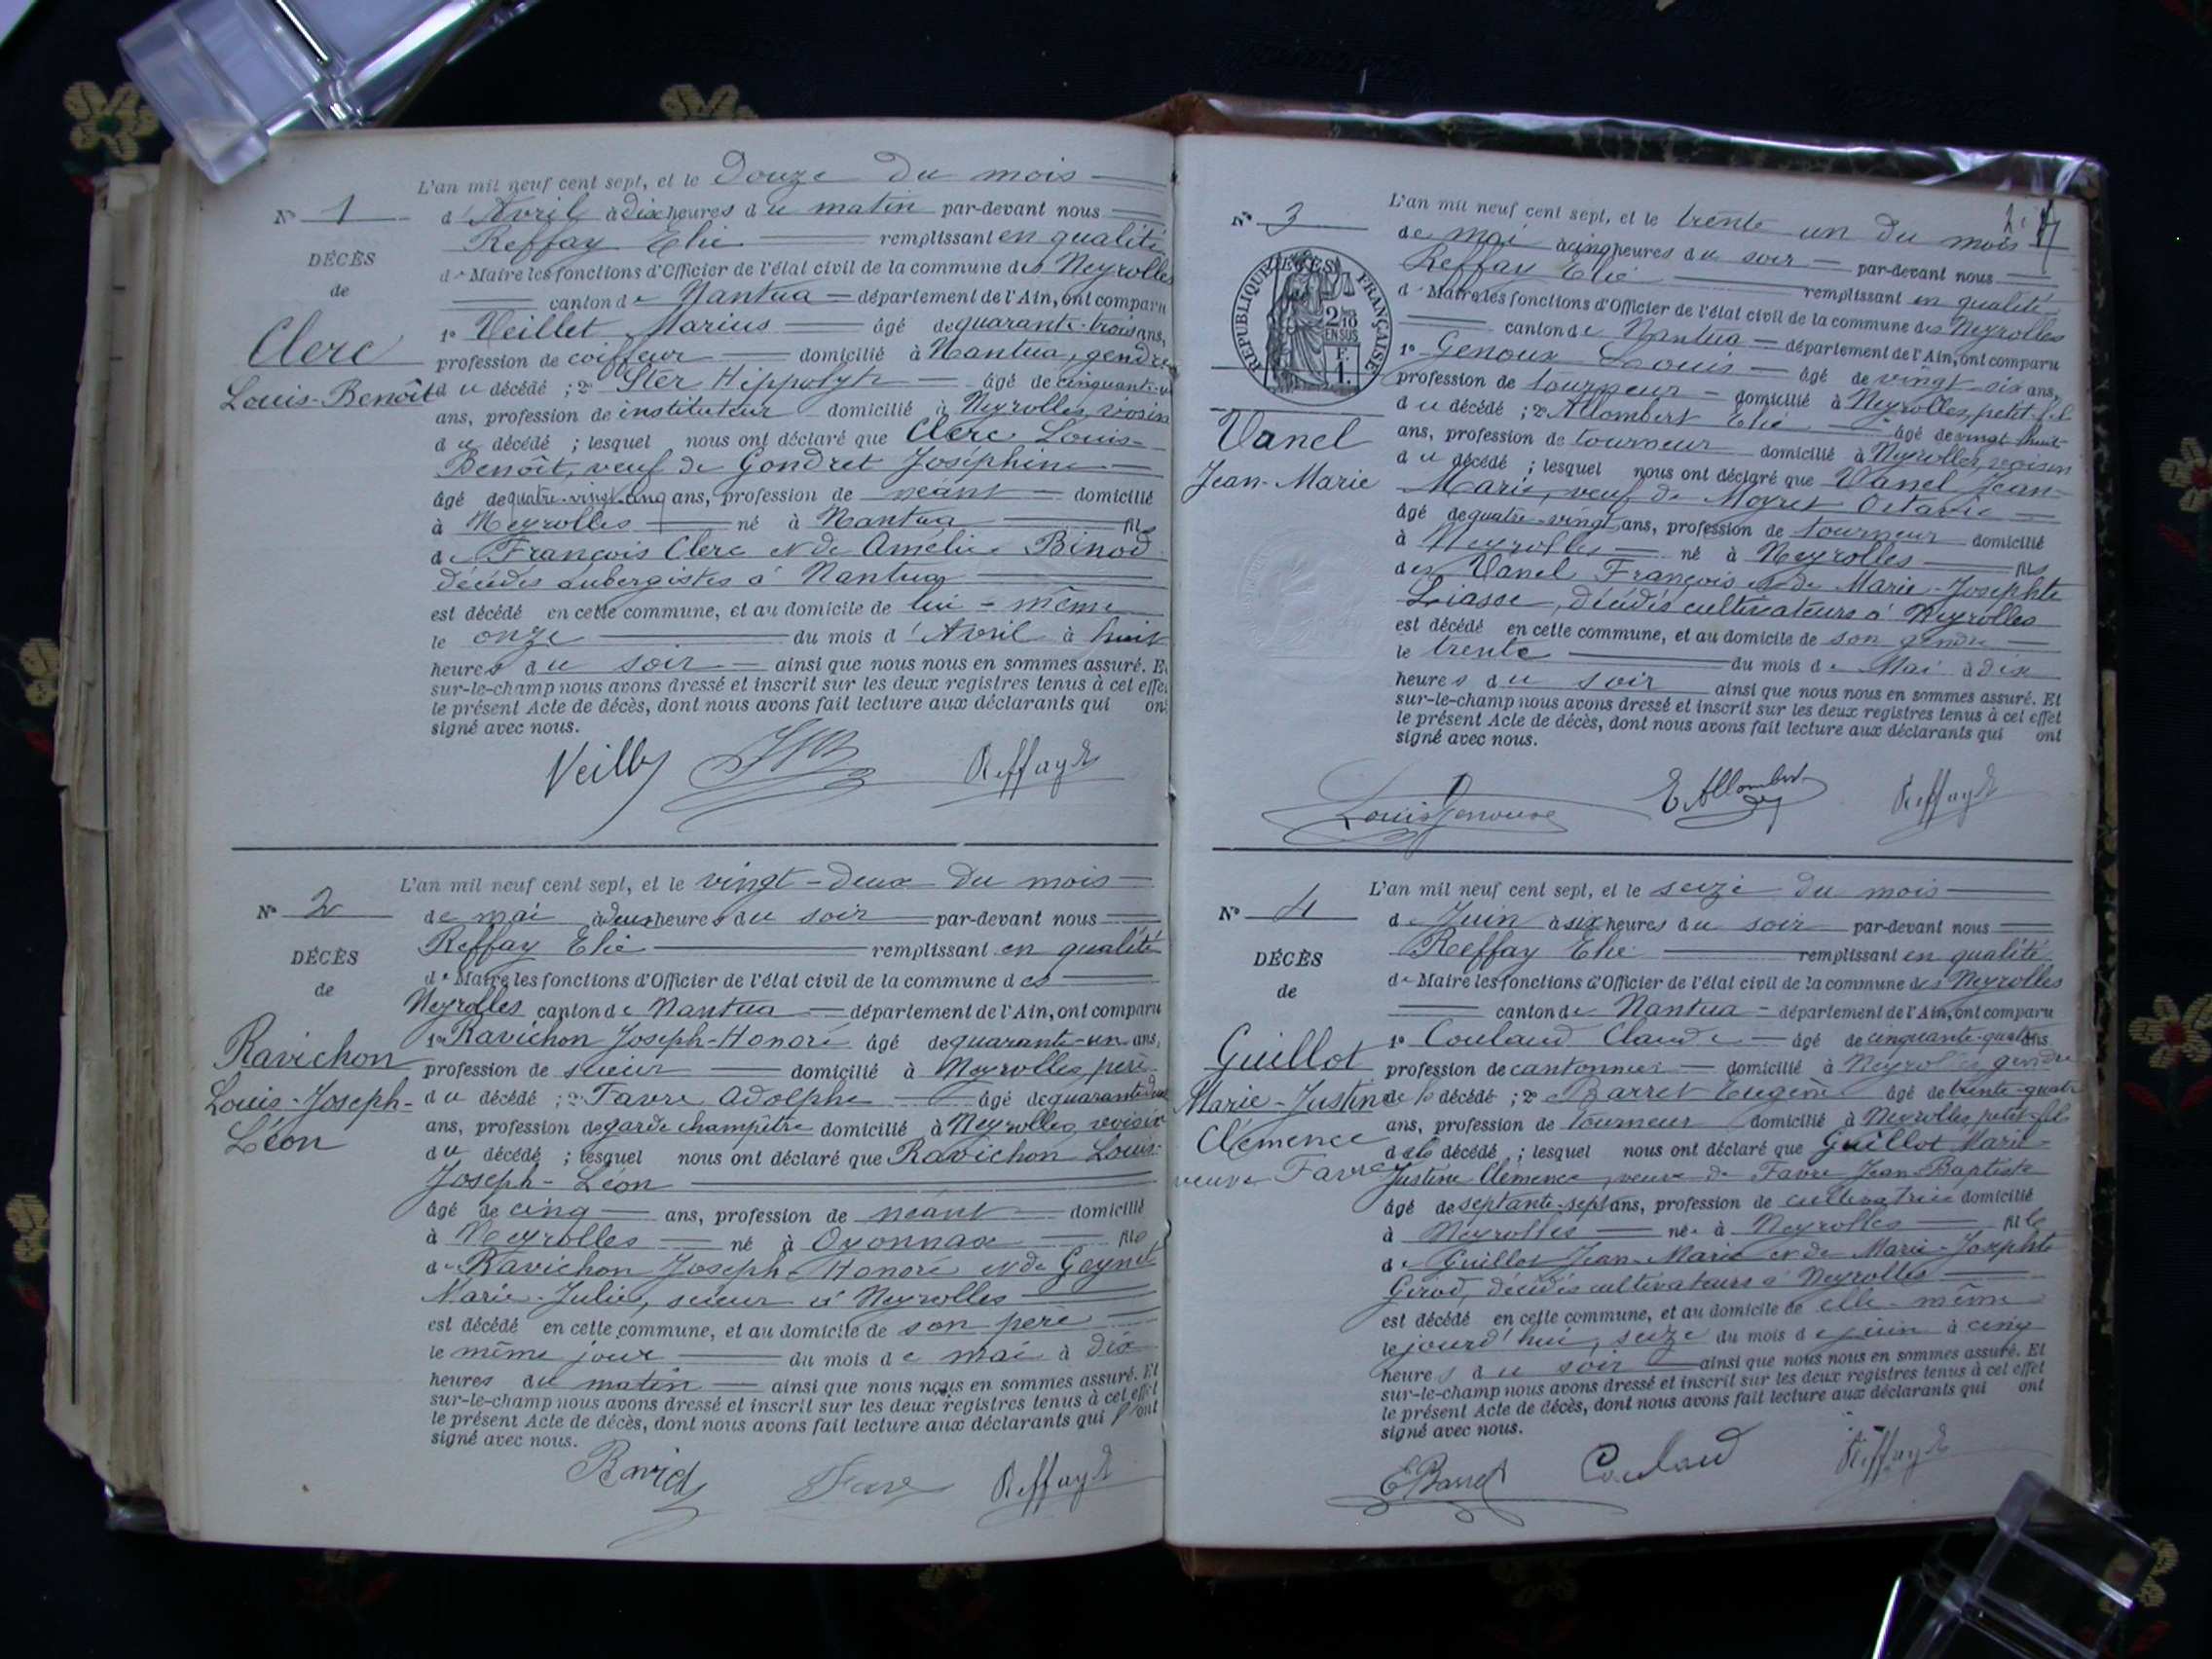 L'an mil neuf cent sept, et le Douze du mois
N° 1
d'Avril à dix heures du matin par-devant nous
Reffay Elie remplissant en qualité
DÉCÈS
de Maire les fonctions d'Officier de l'état civil de la commune des Neyrolles
de
canton de Nantua département de l'Ain, ont comparu
1° Veillet Marius âgé de quarante-trois ans,
Clerc
profession de coiffeur domicilié à Nantua, gendre
Louis-Benoît
du décédé ; 2° Ster Hippolyte âgé de cinquante-
ans, profession de instituteur domicilié à Neyrolles, voisin
du décédé ; lesquel nous ont déclaré que Clerc Louis-
Benoît, veuf de Gondret Joséphine
âgé de quatre-vingt-cinq ans, profession de néant domicilié
à Neyrolles né à Nantua fils
de François Clerc et de Amélie Binod
décédés aubergistes à Nantua
est décédé en cette commune, et au domicile de lui-même
le onze du mois d'Avril à huit
heures du soir ainsi que nous nous en sommes assuré. Et
sur-le-champ nous avons dressé et inscrit sur les deux registres tenus à cet effet
le présent Acte de décès, dont nous avons fait lecture aux déclarants qui ont
signé avec nous.
Veillet Reffay E
L'an mil neuf cent sept, et le vingt-deux du mois
N° 2
de mai à deux heures du soir par-devant nous
Reffay Elie remplissant en qualité
DÉCÈS
de Maire les fonctions d'Officier de l'état civil de la commune des
de
Neyrolles canton de Nantua département de l'Ain, ont comparu
1° Ravichon Joseph-Honoré âgé de quarante-un ans,
Ravichon
profession de scieur domicilié à Neyrolles, père
Louis-Joseph-
du décédé ; 2° Favre Adolphe âgé de quarante-deux
Léon
ans, profession de garde champêtre domicilié à Neyrolles, voisin
du décédé ; lesquel nous ont déclaré que Ravichon Louis-
Joseph-Léon
âgé de cinq ans, profession de néant domicilié
à Neyrolles né à Oyonnax fils
de Ravichon Joseph-Honoré et de Goynet
Marie-Julie, scieur à Neyrolles
est décédé en cette commune, et au domicile de son père
le même jour du mois de mai à dix
heures du matin ainsi que nous nous en sommes assuré. Et
sur-le-champ nous avons dressé et inscrit sur les deux registres tenus à cet effet
le présent Acte de décès, dont nous avons fait lecture aux déclarants qui l'ont
signé avec nous.
Favre Reffay E
L'an mil neuf cent sept, et le trente un du mois
N° 3
de mai à cinq heures du soir par-devant nous
Reffay Elie remplissant en qualité
de Maire les fonctions d'Officier de l'état civil de la commune des Neyrolles
RÉPUBLIQUE FRANÇAISE
2/10 EN SUS
F. 1.
canton de Nantua département de l'Ain, ont comparu
1° Genoux Louis âgé de vingt-six ans,
profession de tourneur domicilié à Neyrolles, petit-fils
du décédé ; 2° Allombert Elie âgé de vingt-huit
Vanel
ans, profession de tourneur domicilié à Neyrolles, voisin
Jean-Marie
du décédé ; lesquel nous ont déclaré que Vanel Jean-
Marie, veuf de Moyret Octavie
âgé de quatre-vingt ans, profession de tourneur domicilié
à Neyrolles né à Neyrolles fils
des Vanel François et de Marie-Josephte
Liasse, décédés cultivateurs à Neyrolles
est décédé en cette commune, et au domicile de son gendre
le trente du mois de Mai à dix
heures du soir ainsi que nous nous en sommes assuré. Et
sur-le-champ nous avons dressé et inscrit sur les deux registres tenus à cet effet
le présent Acte de décès, dont nous avons fait lecture aux déclarants qui ont
signé avec nous.
Louis Genoux E Allombert Reffay E
L'an mil neuf cent sept, et le seize du mois
N° 4
de Juin à six heures du soir par-devant nous
Reffay Elie remplissant en qualité
DÉCÈS
de Maire les fonctions d'Officier de l'état civil de la commune des Neyrolles
de
canton de Nantua département de l'Ain, ont comparu
1° Couland Claude âgé de cinquante-quatre ans
Guillot
profession de cantonnier domicilié à Neyrolles, gendre
Marie-Justine
de la décédé ; 2° Barret Eugène âgé de trente-quatre
Clémence
ans, profession de tourneur domicilié à Neyrolles, petit-fils
veuve Favre
de la décédé ; lesquel nous ont déclaré que Guillot Marie-
Justine Clémence, veuve de Favre Jean-Baptiste
âgé de septante-sept ans, profession de cultivatrice domicilié
à Neyrolles née à Neyrolles fille
de Guillot Jean-Marie et de Marie-Josephte
Girod, décédés cultivateurs à Neyrolles
est décédé en cette commune, et au domicile de elle-même
le jourd'hui, seize du mois de juin à cinq
heures du soir ainsi que nous nous en sommes assuré. Et
sur-le-champ nous avons dressé et inscrit sur les deux registres tenus à cet effet
le présent Acte de décès, dont nous avons fait lecture aux déclarants qui ont
signé avec nous.
E Barret Couland Reffay E